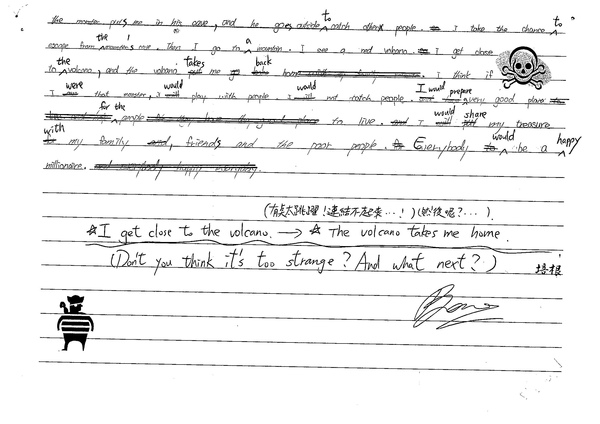 the monster puts me in his cave, and he goes outside to catch others people. I take the chance to
escape from the monster's cave. Then I go to a mountain. I see a red volcano. I get close
to the volcano, and the volcano takes me go back home. I think if
I were that monster, I would play with people. I would not catch people. I would prepare very good place
for the people to live. and I would share my treasure
with my family and, friends and the poor people. Everybody would be a happy
millionaire.
(有點太跳躍!連結不起來…!)(然後呢?…)
☆I get close to the volcano. → ☆ The volcano takes me home.
(Don't you think it's too strange? And what next?)
培根